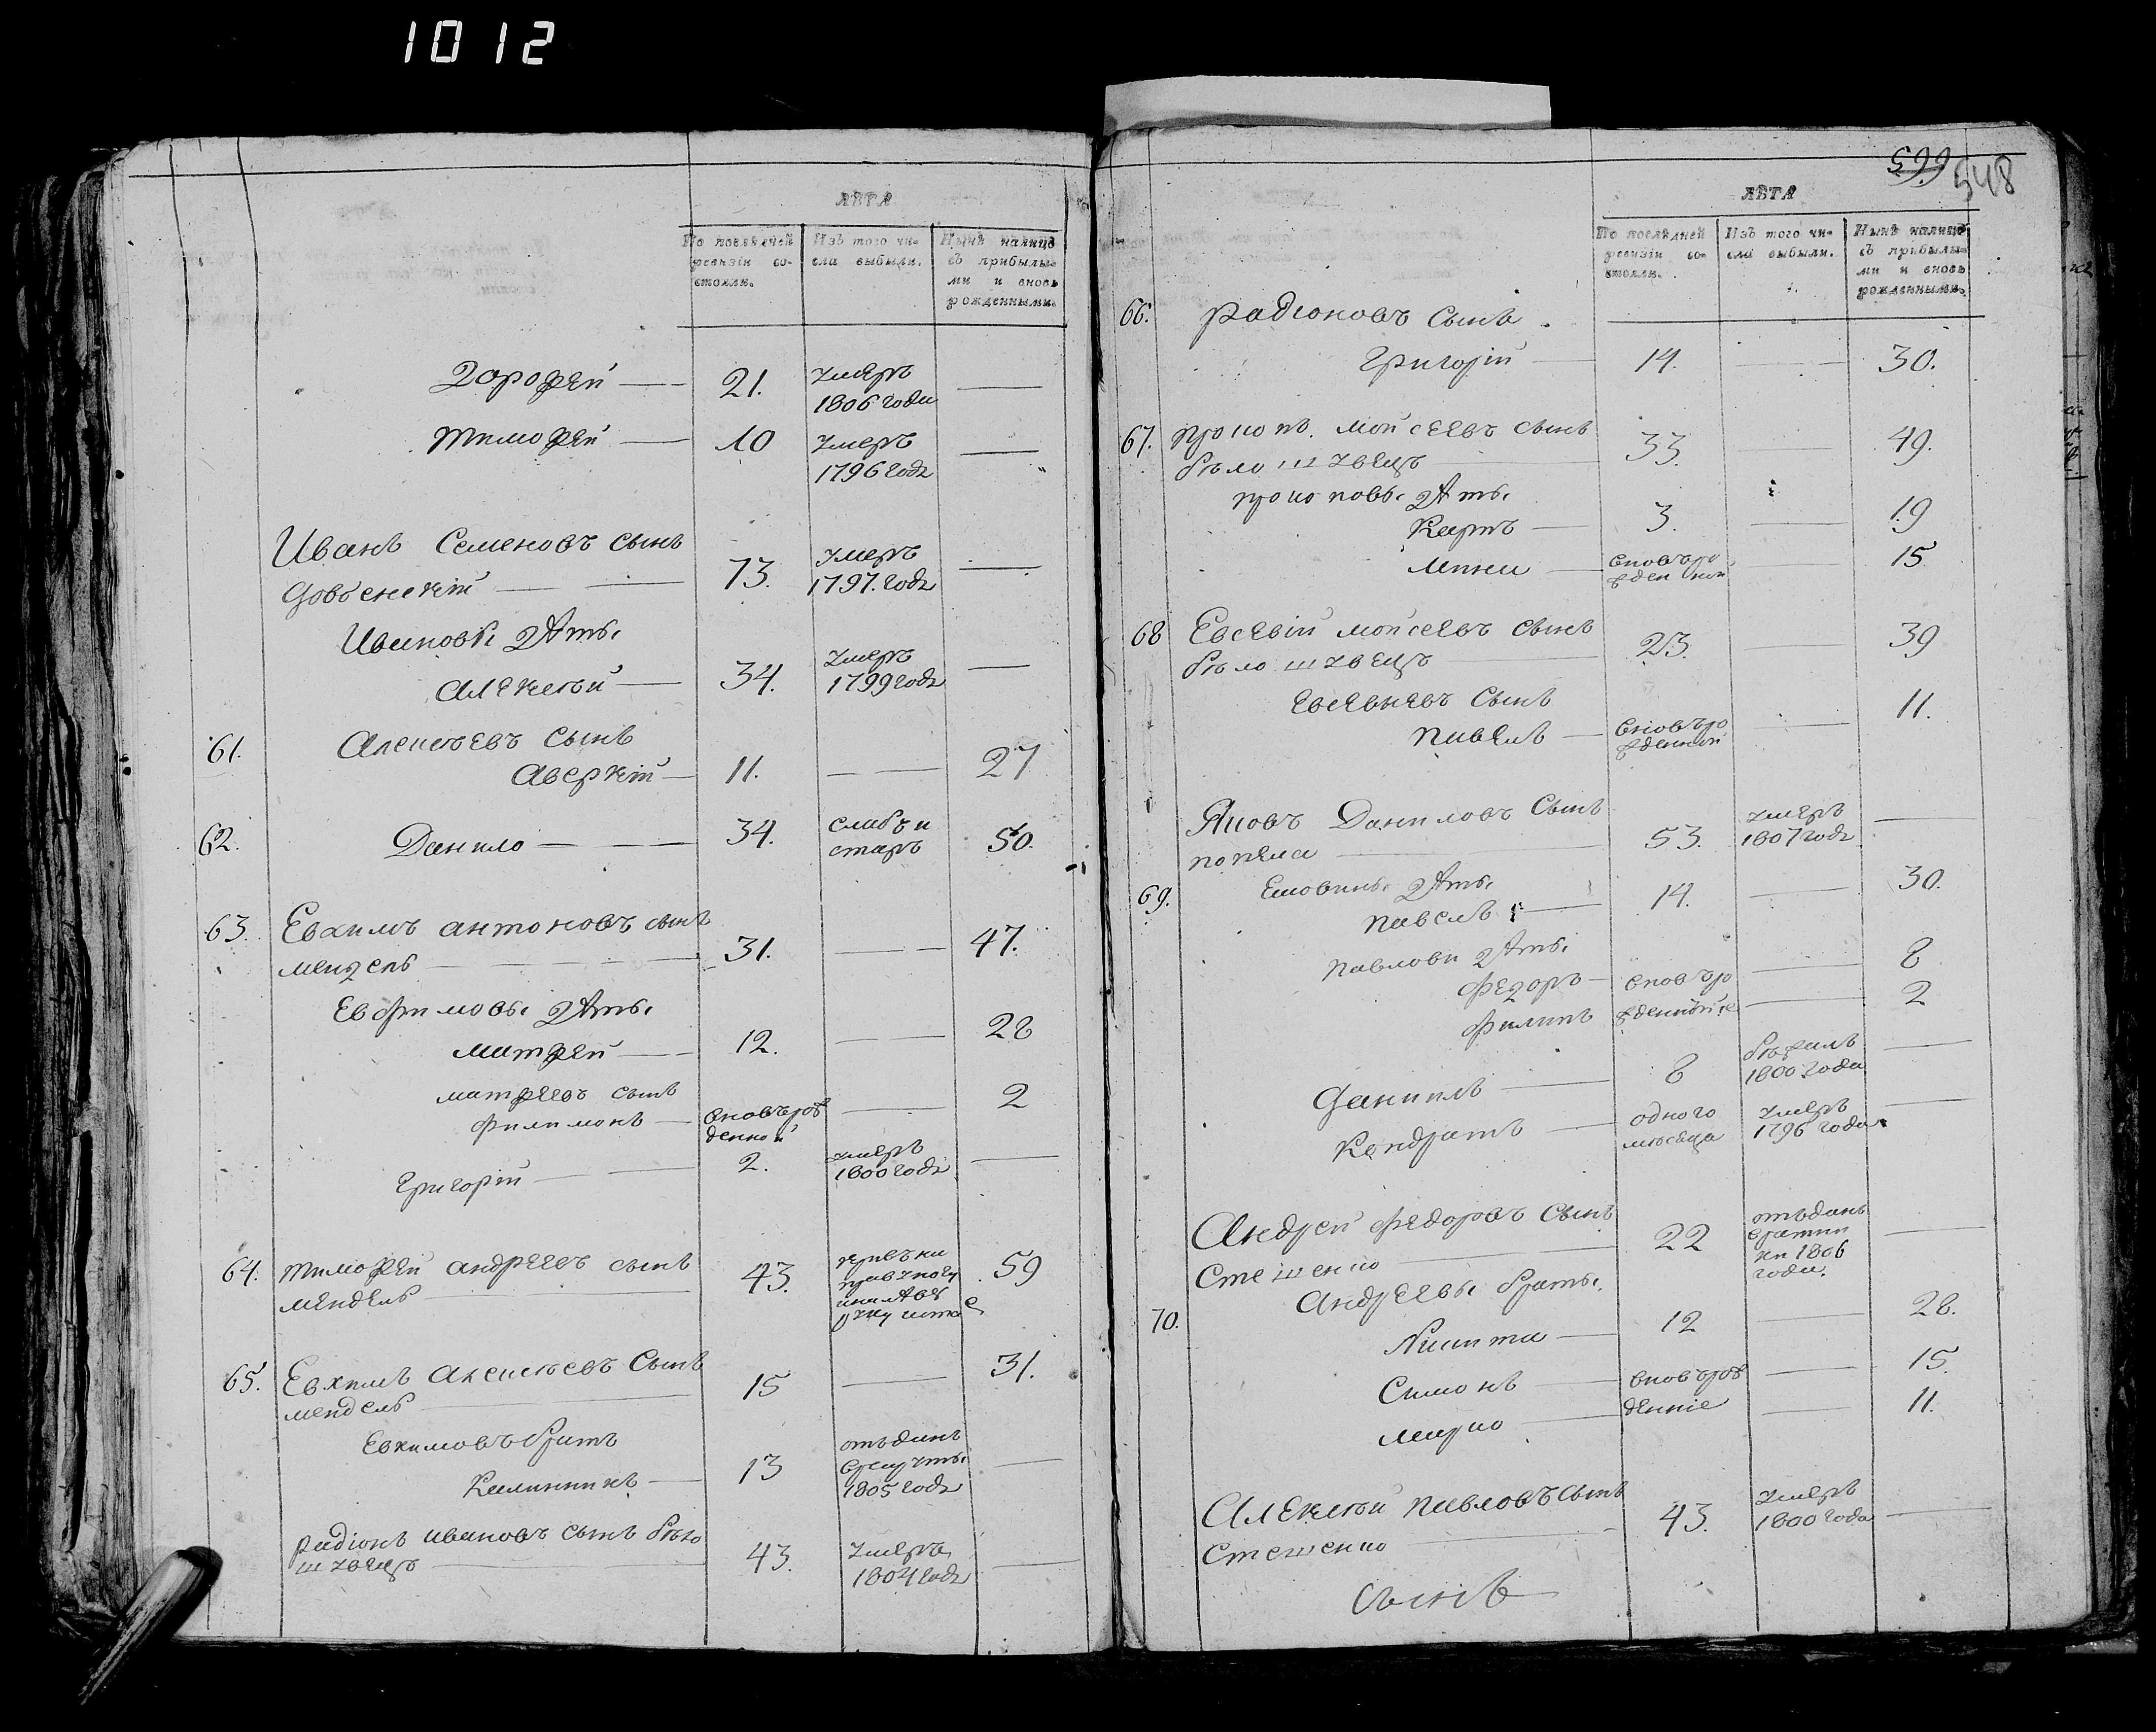 1012
ЛѢТА
По послѣдней ревизіи состояли.
Изъ того числа выбыли.
Нынѣ налицо съ прибылыми и вновь рожденными.
Дорофей — 21. умеръ 1806 года —
Тимофей — 10 умеръ 1796 года —
Иванъ Семеновъ сынъ
73. умеръ 1797. года —
Ивановы дѣти
Алексѣй — 34. умеръ 1799 года —
61. Алексѣевъ сынъ
Аверкій — 11. — 27
62. Данило — 34. слабъ и старъ 50.
63. Евхимъ Антоновъ сынъ
Мендель — 31. — 47.
Евфимовы дѣти
Матфей — 12. — 28
Матфеевъ сынъ
Филимонъ — вновьрожденной — 2
Григорій — 2. умеръ 1800 года —
64. Тимофей Андреевъ сынъ
Мендель — 43. 59
65. Евхимъ Алексѣевъ сынъ
Мендель — 15 — 31.
Евхимовъ братъ
Калинникъ — 13 отъданъ в рекруты 1805 года —
Радіонъ Ивановъ сынъ Бѣло
шувецъ — 43. умеръ 1804 года —
599 548
ЛѢТА
По послѣдней ревизіи состояли.
Изъ того числа выбыли.
Нынѣ налицо съ прибылыми и вновь рожденными.
66. Радіоновъ сынъ
Григорій — 14. — 30.
67. Прокопъ Мойсеевъ сынъ
Бѣлошувецъ — 33. — 49.
Прокоповы дѣти
Карпъ — 3. — 19
вновьрожденной 15
68 Евсевій Мойсеевъ сынъ
Бѣлошувецъ — 23. — 39
Евсевіевъ сынъ
Павелъ — вновьрожденной — 11.
Яковъ Даниловъ сынъ
Попела — 53. умеръ 1807 года —
69. дѣти
Павелъ — 14. — 30.
Павлови дѣти
Федоръ — вновьро — 8
Филипъ жденные — 2
Данилъ — 8 бѣжалъ 1800 года —
Кондратъ — одного месяца умеръ 1796 года —
Андрей Федоровъ сынъ
Стешенко — 22 отъданъ 1806 года. —
Андреевы браты.
70. Никита — 12 — 28.
Симонъ — вновьрож — 15.
Марко — денніе — 11.
Алексѣй Павловъ сынъ
Стешенко — 43. умеръ 1800 года —
сынъ